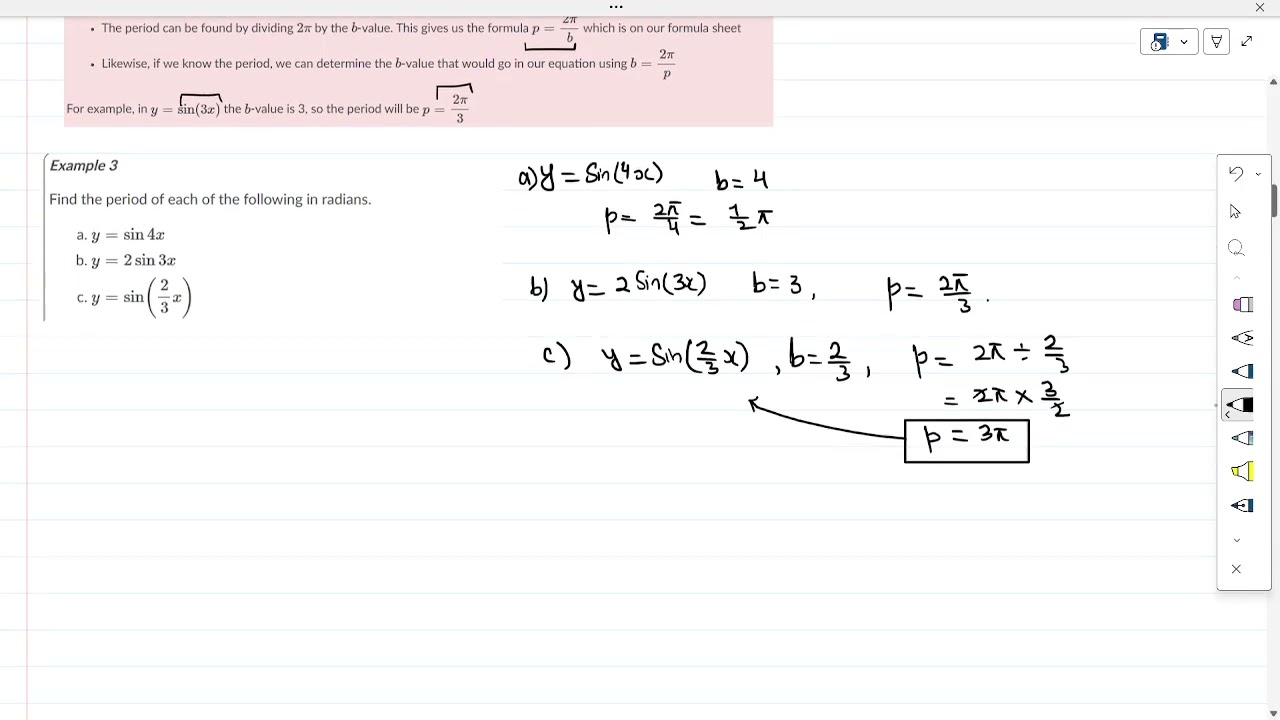 • The period can be found by dividing 2π by the b-value. This gives us the formula p = 2π/b which is on our formula sheet
• Likewise, if we know the period, we can determine the b-value that would go in our equation using b = 2π/p
For example, in y = sin(3x) the b-value is 3, so the period will be p = 2π/3
Example 3
Find the period of each of the following in radians.
a. y = sin 4x
b. y = 2 sin 3x
c. y = sin(2/3 x)
a) y = Sin(4x) b = 4
p = 2π/4 = 1/2 π
b) y = 2 Sin(3x) b = 3, p = 2π/3.
c) y = Sin(2/3 x), b = 2/3, p = 2π ÷ 2/3
= 2π × 3/2
p = 3π